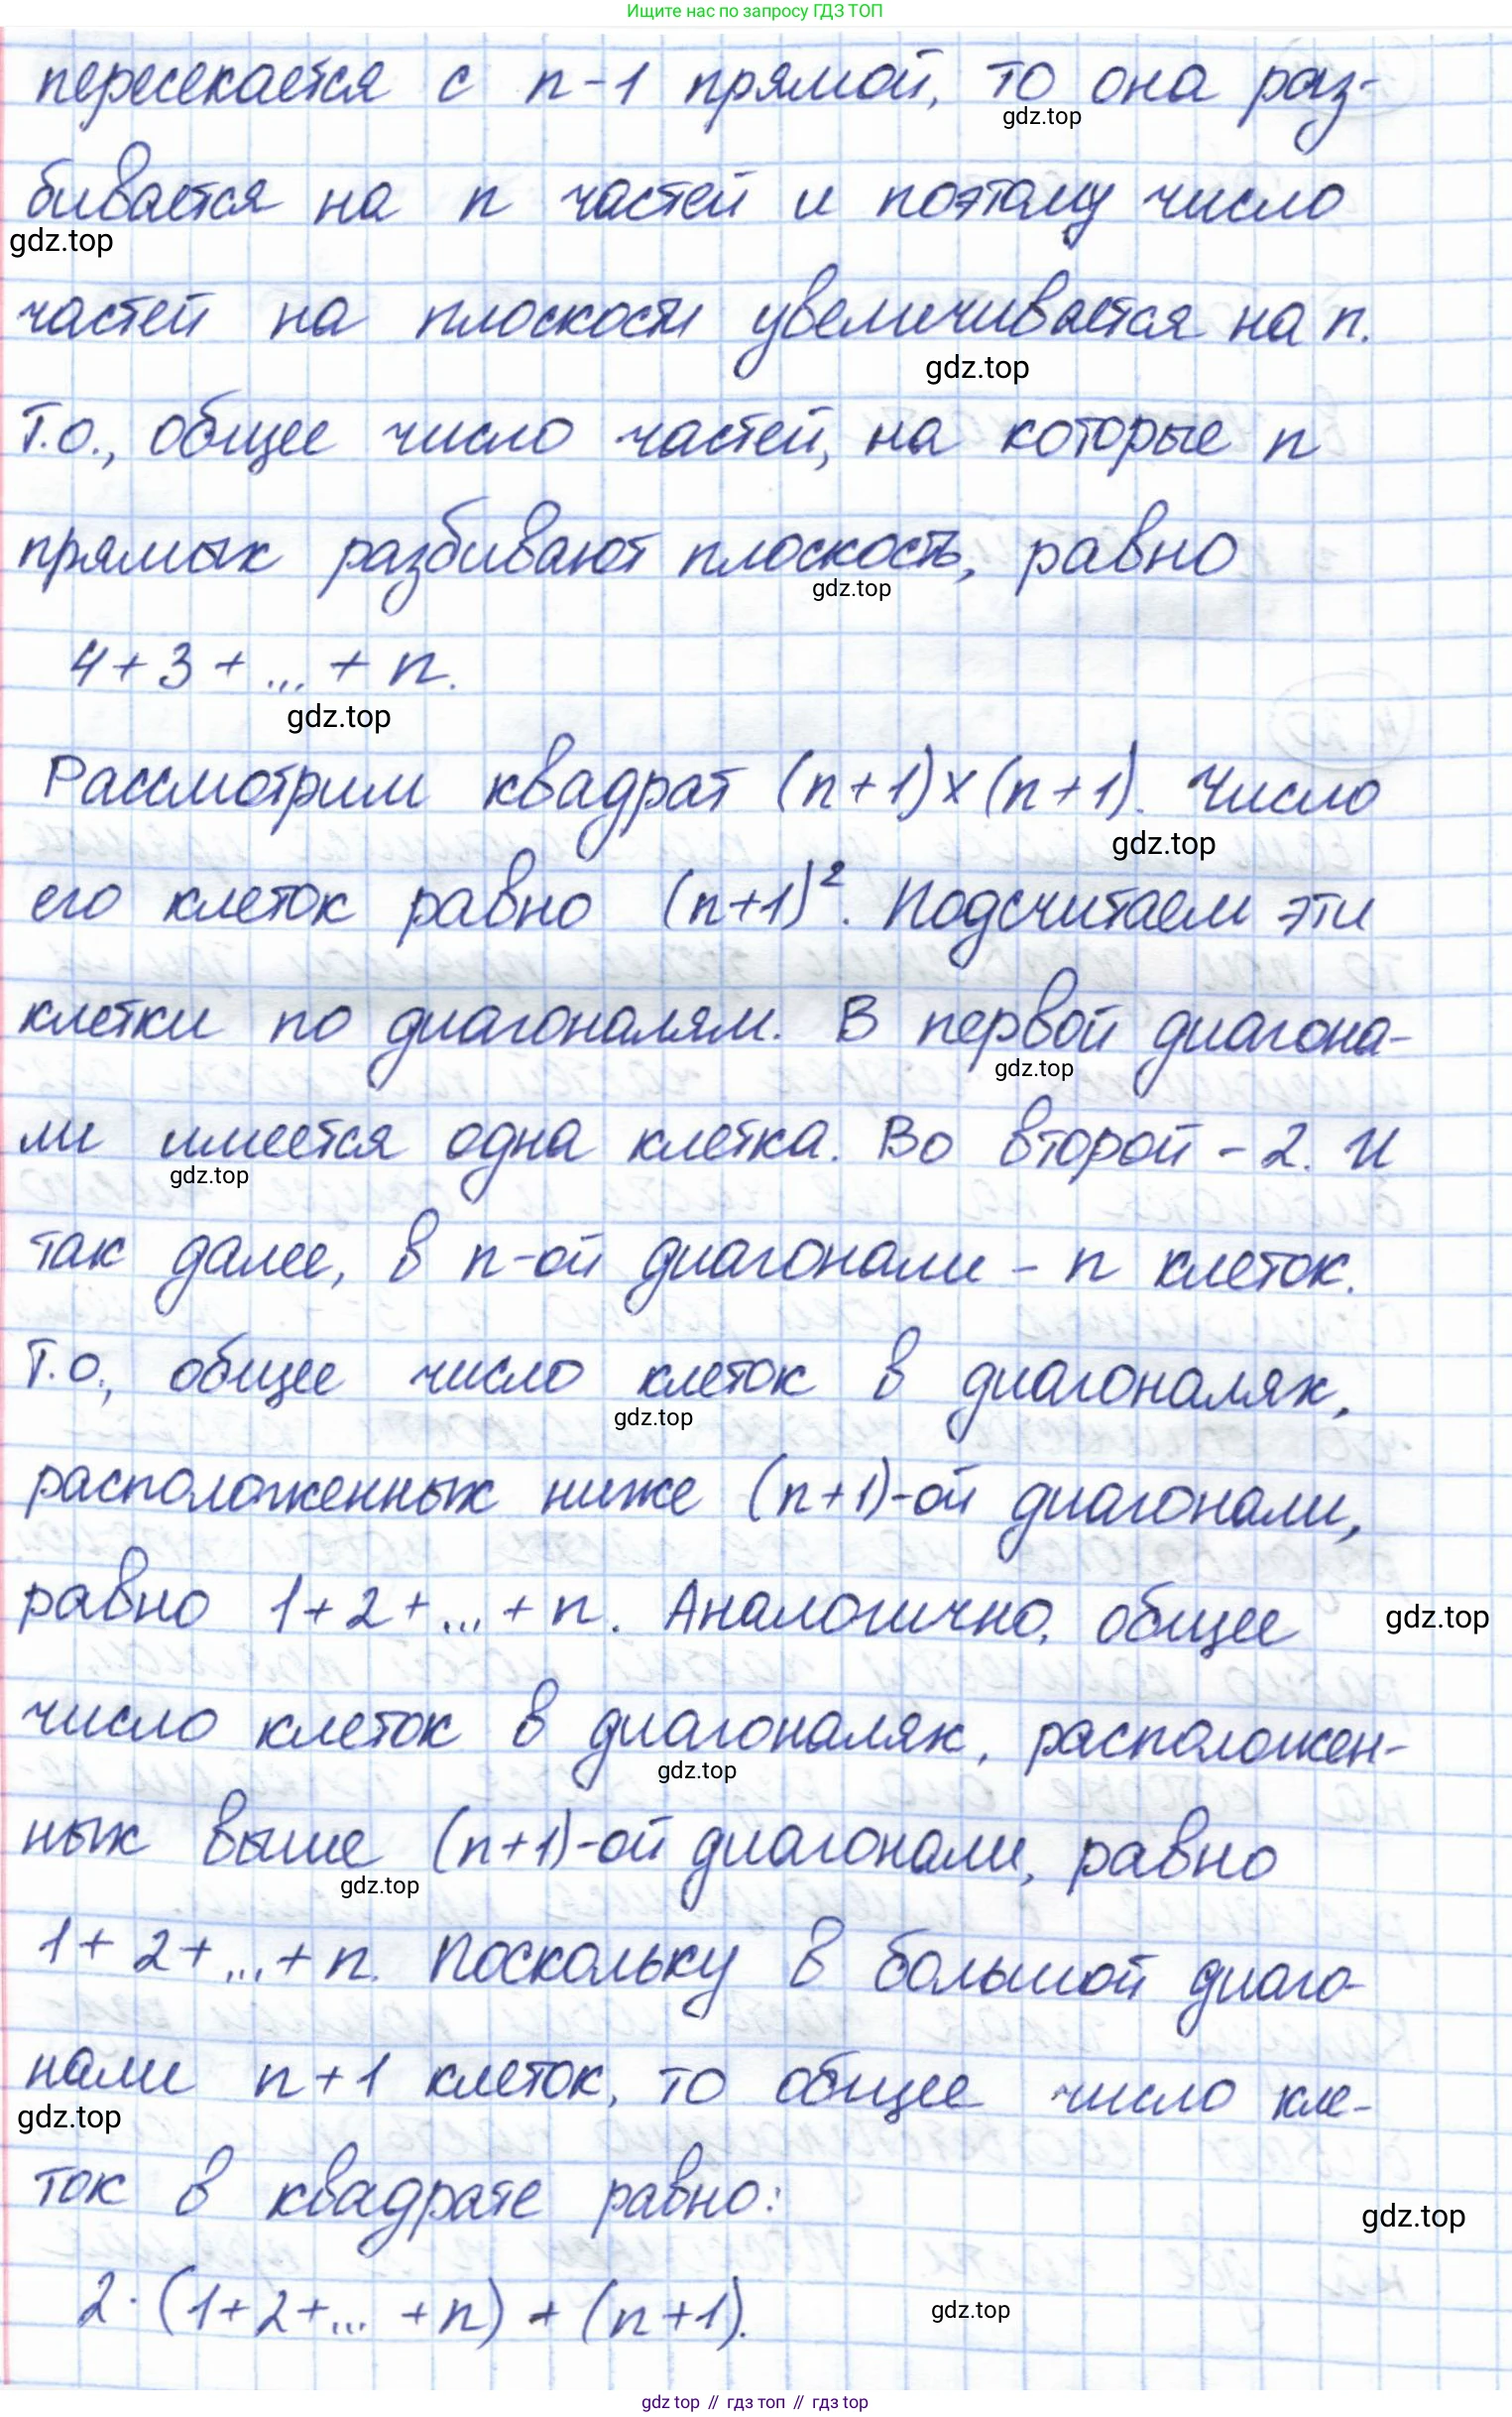 Ищите нас по запросу ГДЗ ТОП
пересекается с n-1 прямой, то она раз-
gdz.top
бивается на n частей и поэтому число
gdz.top
частей на плоскости увеличивается на n.
gdz.top
Т.о., общее число частей, на которые n
прямых разбивают плоскость, равно
gdz.top
4+3+...+n.
gdz.top
Рассмотрим квадрат (n+1)×(n+1). Число
gdz.top
его клеток равно (n+1)². Подсчитаем эти
клетки по диагоналям. В первой диагона-
gdz.top
ли имеется одна клетка. Во второй - 2. И
gdz.top
так далее, в n-ой диагонали - n клеток.
Т.о., общее число клеток в диагоналях,
gdz.top
расположенных ниже (n+1)-ой диагонали,
равно 1+2+...+n. Аналогично, общее
gdz.top
число клеток в диагоналях, расположен-
gdz.top
ных выше (n+1)-ой диагонали, равно
gdz.top
1+2+...+n. Поскольку в большой диаго-
нали n+1 клеток, то общее число кле-
gdz.top
ток в квадрате равно:
gdz.top
2·(1+2+...+n)+(n+1).
gdz.top
gdz top // гдз топ // гдз top